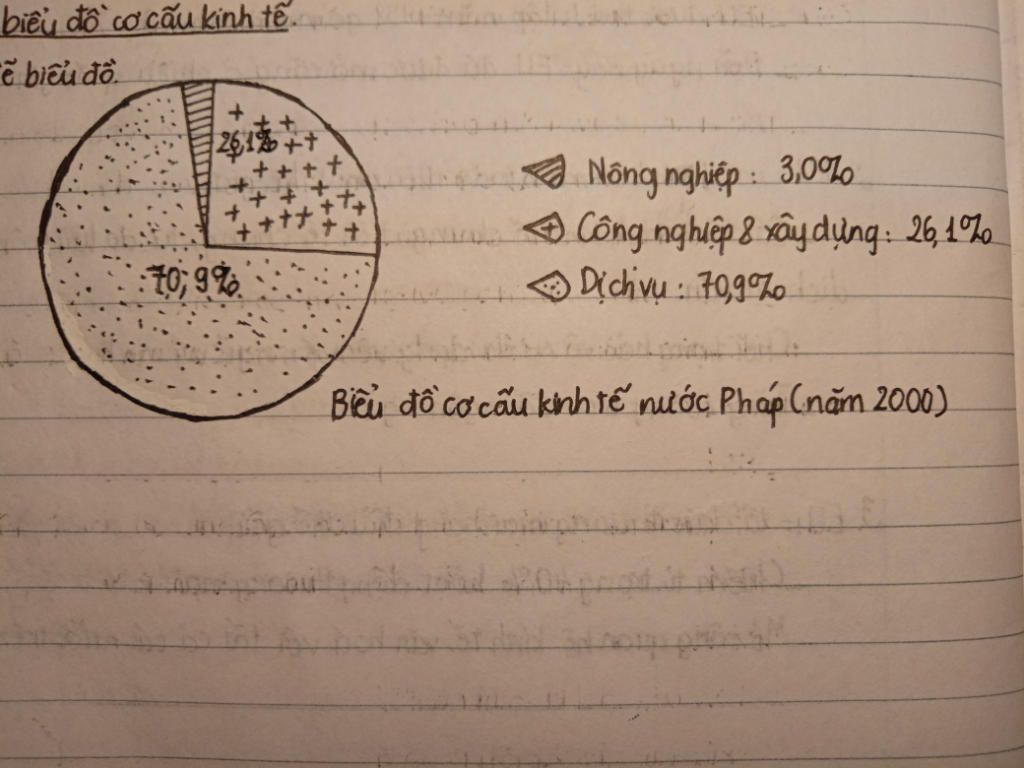 biểu đồ cơ cấu kinh tế.
ẽ biểu đồ.
26,1%
70,9%
Nông nghiệp: 3,0%
Công nghiệp & xây dựng: 26,1%
Dịch vụ: 70,9%
Biểu đồ cơ cấu kinh tế nước Pháp (năm 2000)